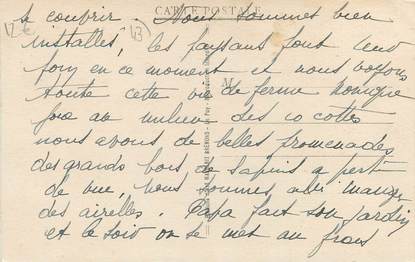 CARTE POSTALE
12€
43
le couvrir. Nous sommes bien
installés, les paysans font leur
foin en ce moment et nous voyons
toute cette vie de ferme Monique
joue au milieu des cocottes
nous avons de belles promenades
des grands bois de sapins à perte
de vue, nous sommes allés manger
des airelles. Papa fait son jardin
et le soir on se met au frais